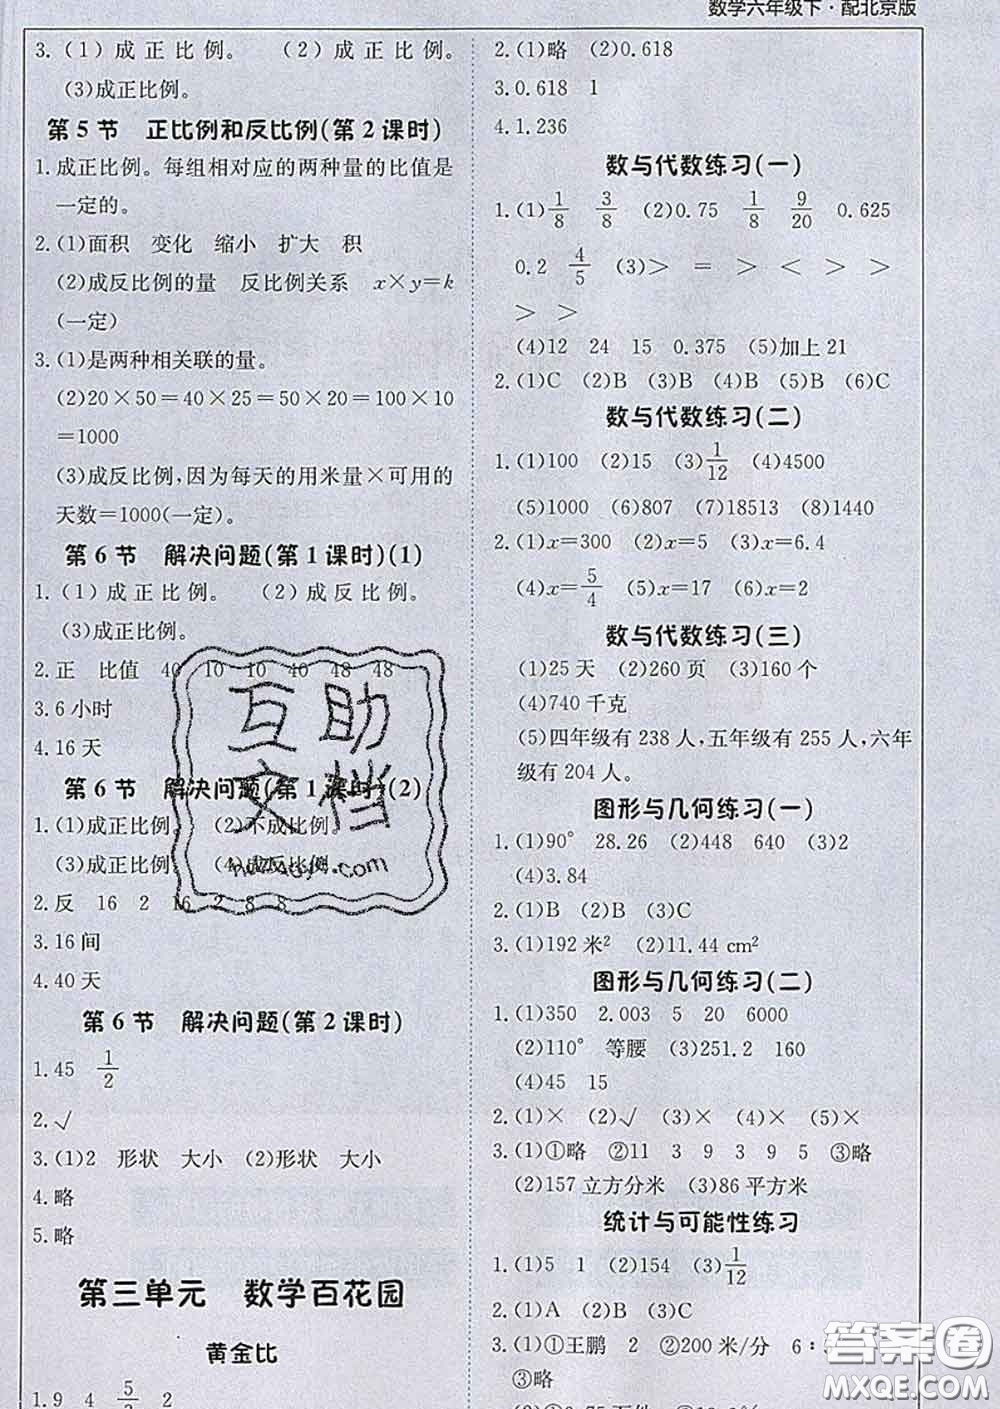 数学六年级下·配北京版
3.(1)成正比例。 (2)成正比例。
(3)成正比例。
第5节 正比例和反比例(第2课时)
1.成正比例。每组相对应的两种量的比值是
一定的。
2.(1)面积 变化 缩小 扩大 积
(2)成反比例的量 反比例关系 x×y=k
(一定)
3.(1)是两种相关联的量。
(2)20×50=40×25=50×20=100×10
=1000
(3)成反比例,因为每天的用米量×可用的
天数=1000(一定)。
第6节 解决问题(第1课时)(1)
1.(1)成正比例。 (2)成反比例。
(3)成正比例。
2.正 比值 40 10 10 40 48 48
3.6小时
4.16天
第6节 解决问题(第1课时)(2)
1.(1)成正比例。 (2)不成比例。
(3)成正比例。 (4)成反比例。
2.反 16 2 16 2 8 8
3.16间
4.40天
第6节 解决问题(第2课时)
1.45 1/2
2.√
3.(1)2 形状 大小 (2)形状 大小
4.略
5.略
第三单元 数学百花园
黄金比
1.9 4 5 2
2.(1)略 (2)0.618
3.0.618 1
4.1.236
数与代数练习(一)
1.(1)1/8 3/8 (2)0.75 1/8 9/20 0.625
0.2 4/5 (3)> = > < > >
> > >
(4)12 24 15 0.375 (5)加上21
2.(1)C (2)B (3)B (4)B (5)B (6)C
数与代数练习(二)
1.(1)100 (2)15 (3)1/12 (4)4500
(5)1000 (6)807 (7)18513 (8)1440
2.(1)x=300 (2)x=5 (3)x=6.4
(4)x=5/4 (5)x=17 (6)x=2
数与代数练习(三)
(1)25天 (2)260页 (3)160个
(4)740千克
(5)四年级有238人,五年级有255人,六年
级有204人。
图形与几何练习(一)
1.(1)90° 28.26 (2)448 640 (3)2
(4)3.84
2.(1)B (2)B (3)C
3.(1)192米² (2)11.44 cm²
图形与几何练习(二)
1.(1)350 2.003 5 20 6000
(2)110° 等腰 (3)251.2 160
(4)45 15
2.(1)× (2)√ (3)× (4)× (5)×
3.(1)①略 ②11 3 9 3 9 5 ③略
(2)157立方分米 (3)86平方米
统计与可能性练习
1.(1)5 1 (2)154 (3)1/12
2.(1)A (2)B (3)C
3.(1)①王鹏 2 ②200米/分 6:5
③略
互助
文档
答案圈
MXQE.COM